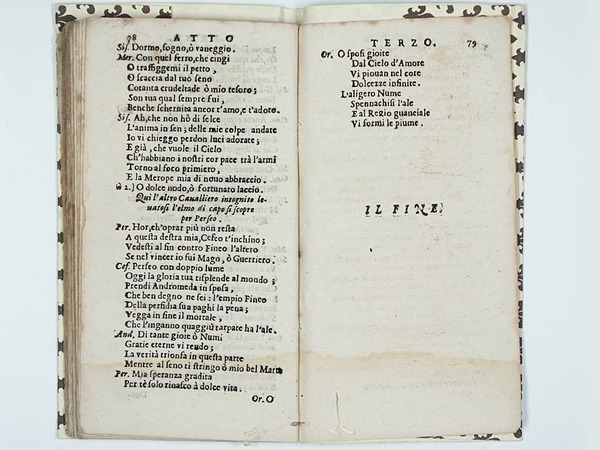 78 ATTO
Sis. Dormo, sogno, ò vaneggio.
Mer. Con quel ferro, che cingi
O traffiggemi il petto,
O scaccia dal tuo seno
Cotanta crudeltade ò mio tesoro;
Son tua qual sempre fui,
Benche schernita ancor t'amo, e t'adoro.
Sis. Ah, che non hò di selce
L'anima in sen; delle mie colpe andate
Io vi chieggo perdon luci adorate;
E già, che vuole il Cielo
Ch'habbiano i nostri cor pace trà l'armi
Torno al foco primiero,
E la Merope mia di nouo abbraccio.
à 2. O dolce nodo, ò fortunato laccio.
Qui l'altro Caualliero incognito le-
uatosi l'elmo di capo si scopre
per Perseo.
Per. Hor, ch'oprar più non resta
A questa destra mia, Cefeo t'inchino;
Vedesti al fin contro Fineo l'altero
Se nel vincer io sui Mago, ò Guerriero.
Cef. Perseo con doppio lume
Oggi la gloria tua risplende al mondo;
Prendi Andromeda in sposa,
Che ben degno ne sei: l'empio Fineo
Della perfidia sua paghi la pena;
Vegga in fine il mortale,
Che l'inganno quaggiù tarpate ha l'ale.
And. Di tante gioie ò Numi
Gratie eterne vi rendo;
La verità trionfa in questa parte
Mentre al seno ti stringo ò mio bel Marte
Per. Mia speranza gradita
Per tè solo rinasco à dolce vita.
Or. O
TERZO. 79
Or. O sposi gioite
Dal Cielo d'Amore
Vi piouan nel core
Dolcezze infinite.
L'aligero Nume
Spennachisi l'ale
E al Regio guanciale
Vi formi le piume.
IL FINE.